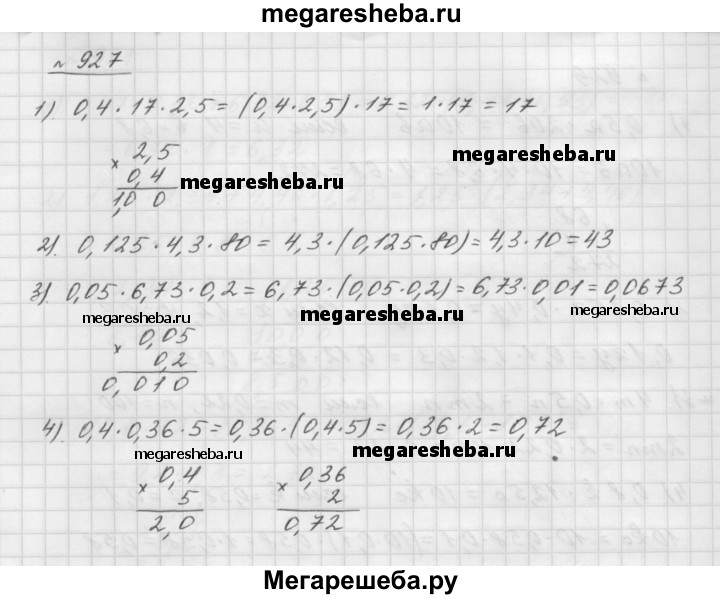 megaresheba.ru
№ 927
1) 0,4 · 17 · 2,5 = (0,4 · 2,5) · 17 = 1 · 17 = 17
× 2,5
megaresheba.ru
0,4
megaresheba.ru
1,0 0
2). 0,125 · 4,3 · 80 = 4,3 · (0,125 · 80) = 4,3 · 10 = 43
3). 0,05 · 6,73 · 0,2 = 6,73 · (0,05 · 0,2) = 6,73 · 0,01 = 0,0673
megaresheba.ru megaresheba.ru megaresheba.ru
× 0,05
0,2
0,010
4). 0,4 · 0,36 · 5 = 0,36 · (0,4 · 5) = 0,36 · 2 = 0,72
megaresheba.ru megaresheba.ru
× 0,4 × 0,36
5 2
2,0 0,72
Мегарешеба.ру